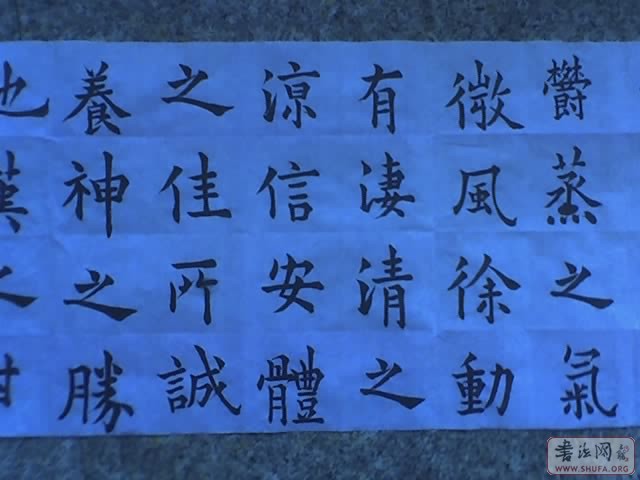 欝蒸之氣
微風徐動
有淒清之
涼信安體
之佳所誠
養神之勝
地漢之甘
书法网
WWW.SHUFA.ORG